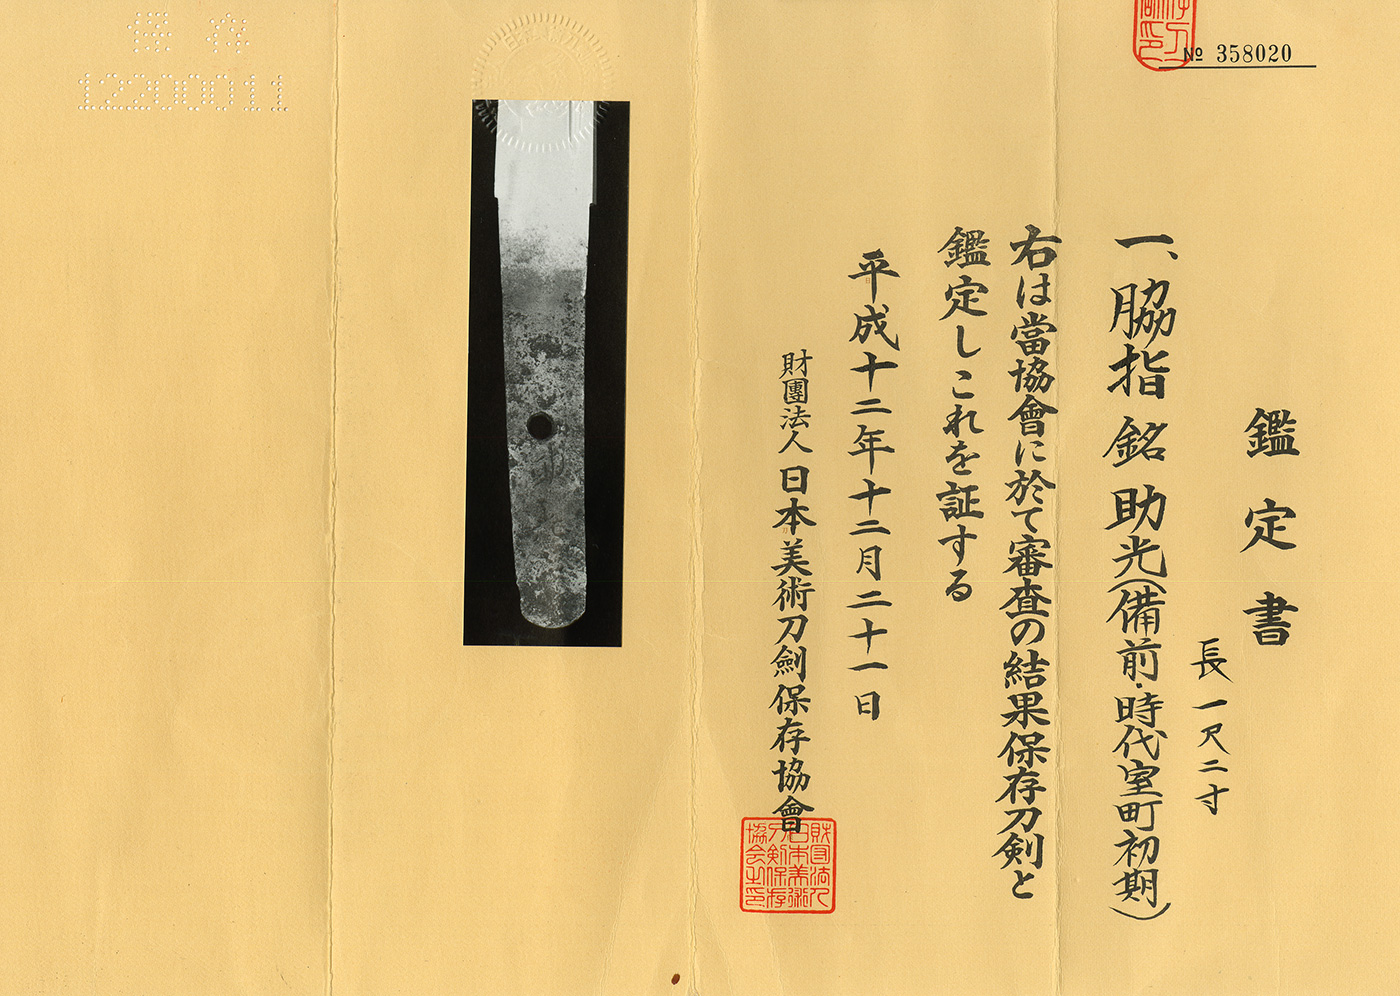 № 358020
鑑定書
長一尺二寸
一、脇指 銘 助光(備前・時代室町初期)
右は當協會に於て審査の結果保存刀剣と
鑑定しこれを証する
平成十二年十二月二十一日
財團法人 日本美術刀劍保存協會
財団法人日本美術刀剣保存協会之印
保存
12200011